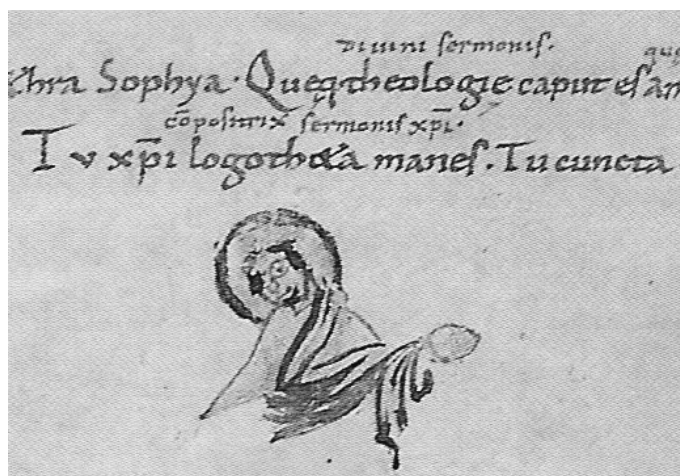 diuini sermonis.
Sophya. Queq; theologie caput es
cōpositrix sermonis xp̄i.
Tu xp̄i logotheta manes. Tu cuncta